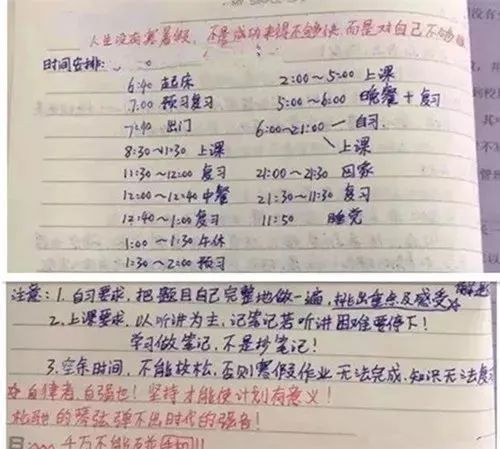 人生没有寒暑假,不是成功来得不够快,而是对自己不够狠
时间安排:
6:40 起床
7:00 预习复习
7:40 出门
8:30~11:30 上课
11:30~12:00 复习
12:00~12:40 中餐
12:40~1:00 复习
1:00~1:30 午休
1:30~2:00 预习
2:00~5:00 上课
5:00~6:00 晚餐+复习
6:00~21:00 自习
上课
21:00~21:30 回家
21:30~11:30 复习
11:50 睡觉
注意:1.自习要求,把题目自己完整地做一遍,挑出重点及感受
2.上课要求,以听讲为主,记笔记若听讲困难要停下!
学习做笔记,不是抄笔记!
3.空余时间,不能放松,否则寒假作业无法完成,知识无法复
自律者,自强也!坚持才能使计划有意义!
松弛的琴弦弹不出时代的强音!
千万不能